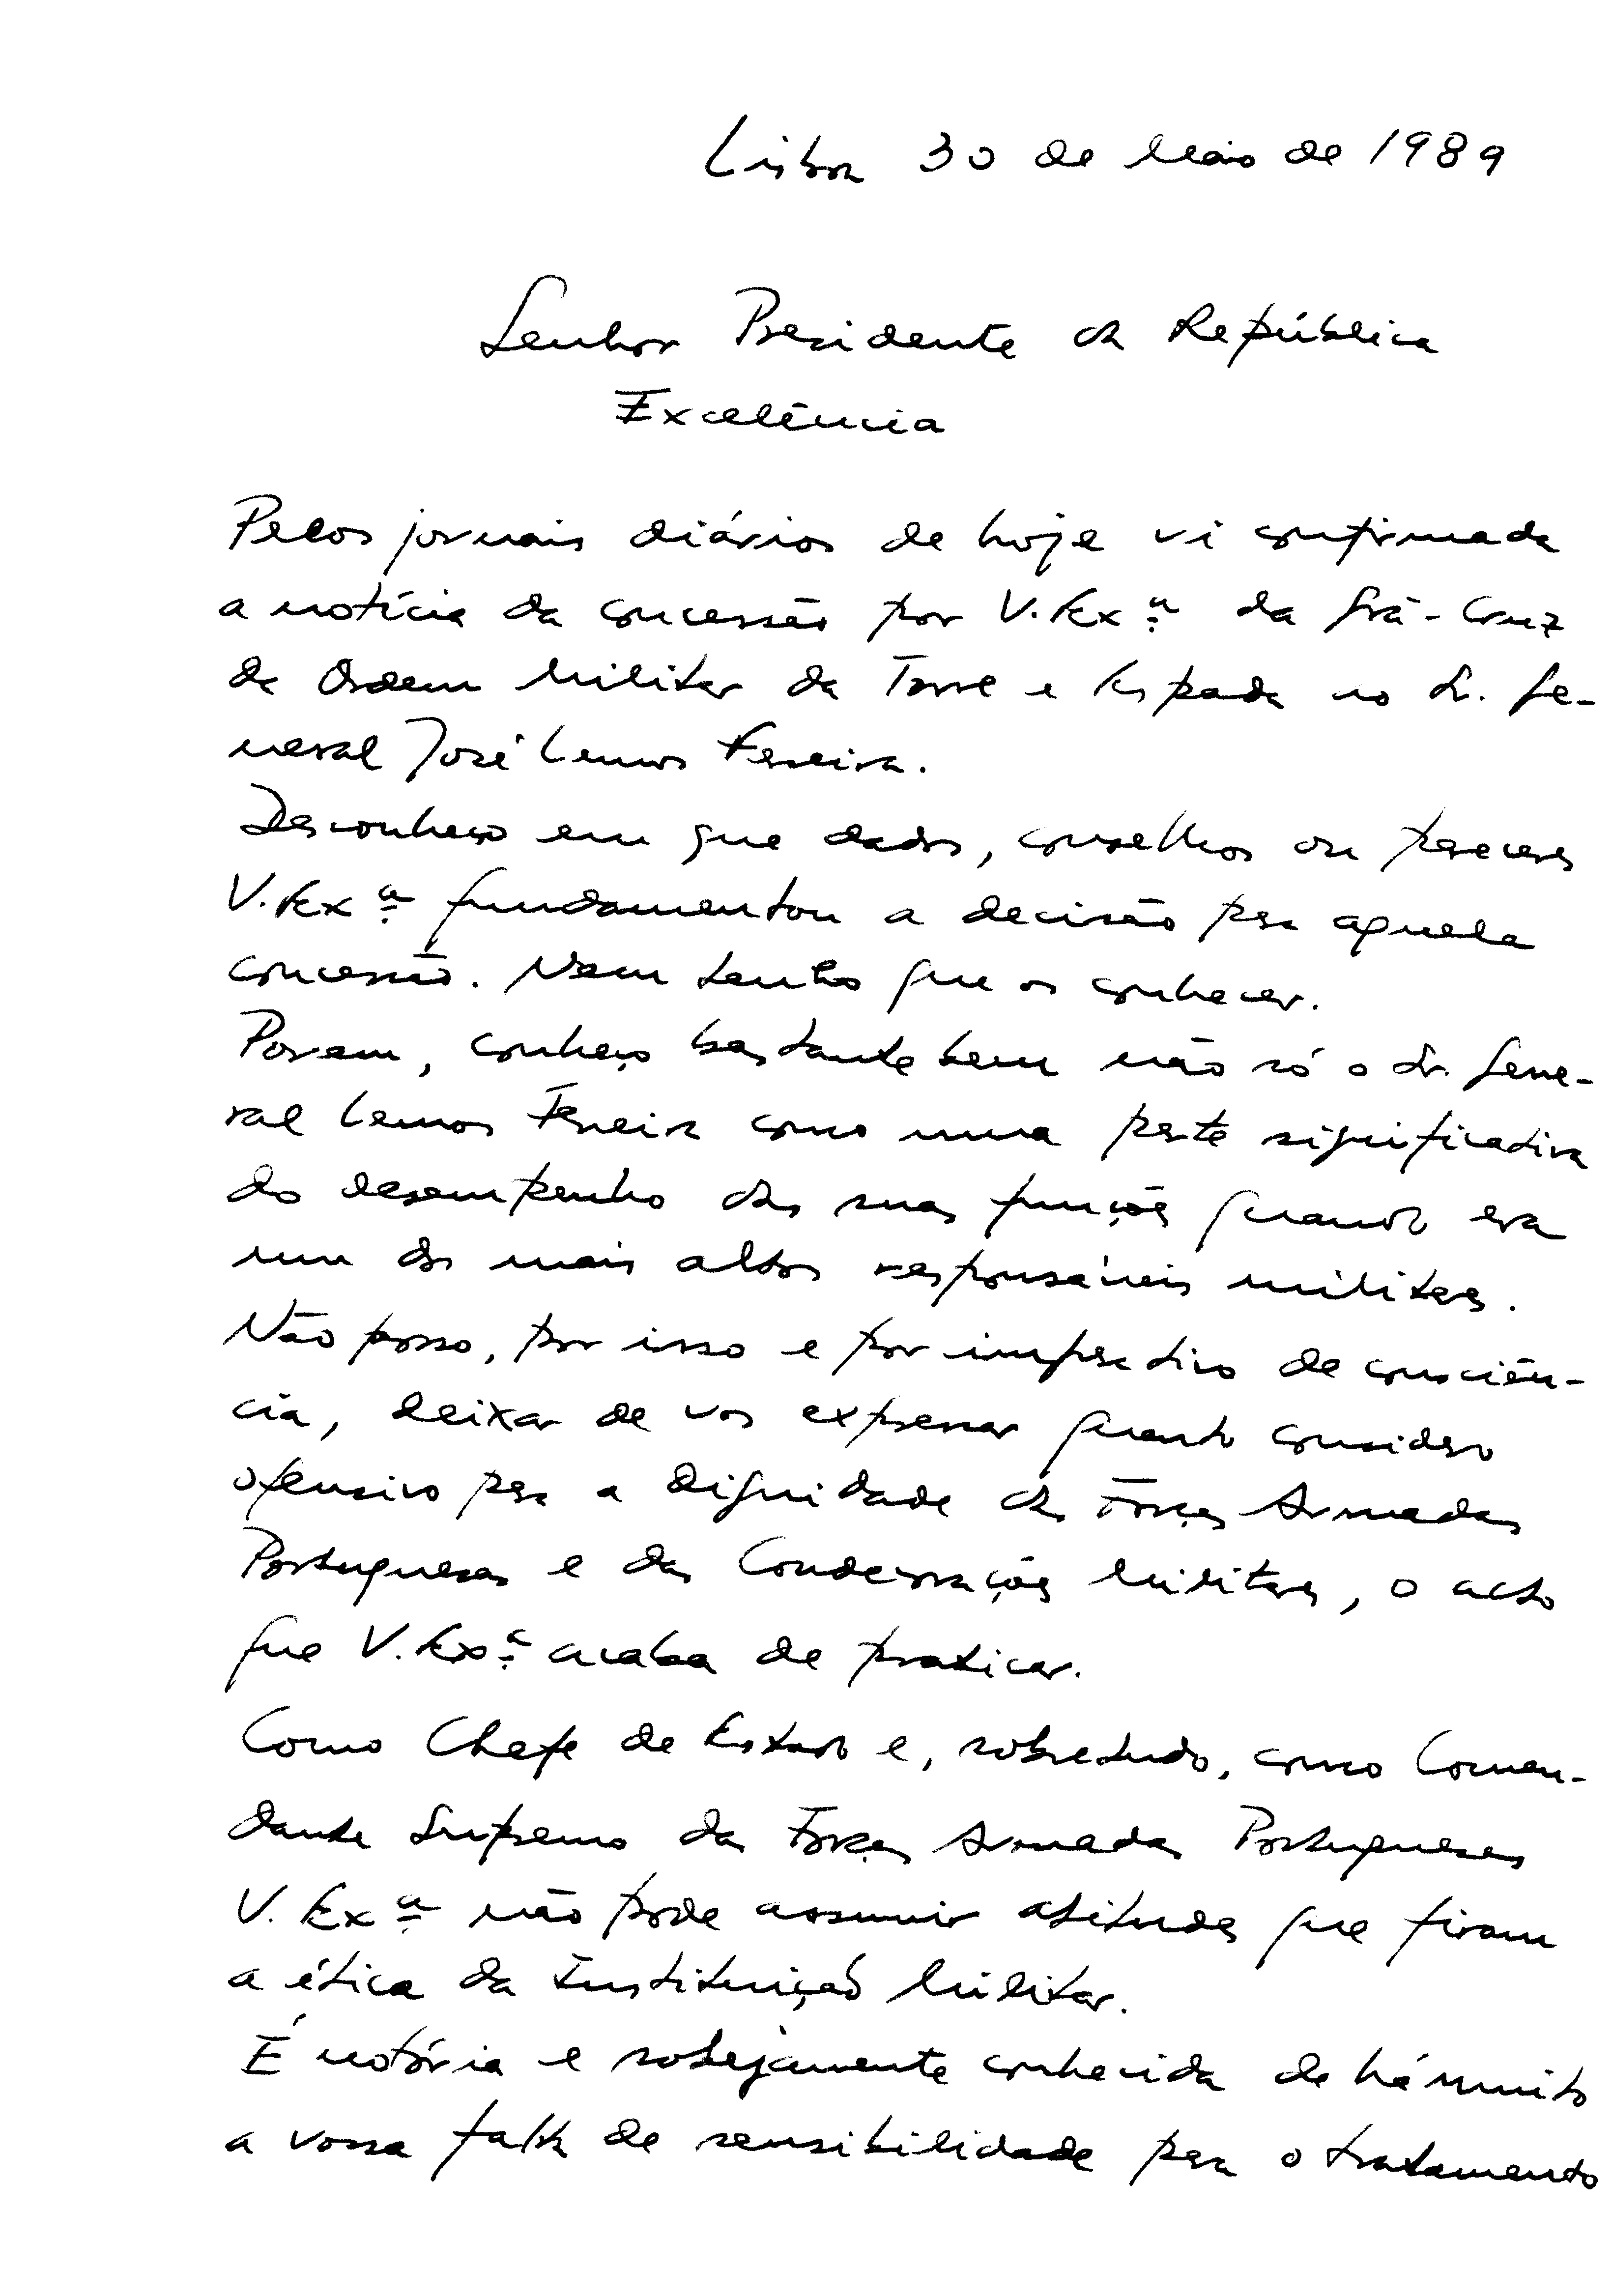 Lisboa 30 de Maio de 1989
Senhor Presidente da República
Excelência
Pelos jornais diários de hoje vi confirmada
a notícia da concessão por V. Exª da Grã-Cruz
da Ordem Militar da Torre e Espada ao Sr. Ge-
neral José Lemos Ferreira.
Desconheço em que dados, conselhos ou pareceres
V. Exª fundamentou a decisão para aquela
concessão. Nem tenho que os conhecer.
Porem, conheço bastante bem não só o Sr. Gene-
ral Lemos Ferreira como uma parte significativa
do desempenho das suas funções quando era
um dos mais altos responsáveis militares.
Não posso, por isso e por imperativo de consciên-
cia, deixar de vos expressar quanto considero
ofensivo para a dignidade das Forças Armadas
Portuguesas e das Condecorações Militares, o acto
que V. Exª acaba de praticar.
Como Chefe de Estado e, sobretudo, como Coman-
dante Supremo das Forças Armadas Portuguesas
V. Exª não pode assumir atitudes que firam
a ética da Instituição Militar.
É notória e sobejamente conhecida de há muito
a vossa falta de sensibilidade para o tratamento